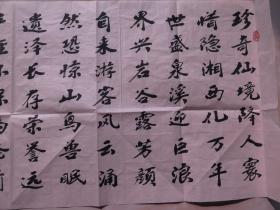 珍奇仙境降人寰
惜隐湘西亿万年
世盛泉溪迎巨浪
界兴岩谷露芳颜
自来游客风云涌
然恐惊山鸟兽眠
遗泽长存荣誉远